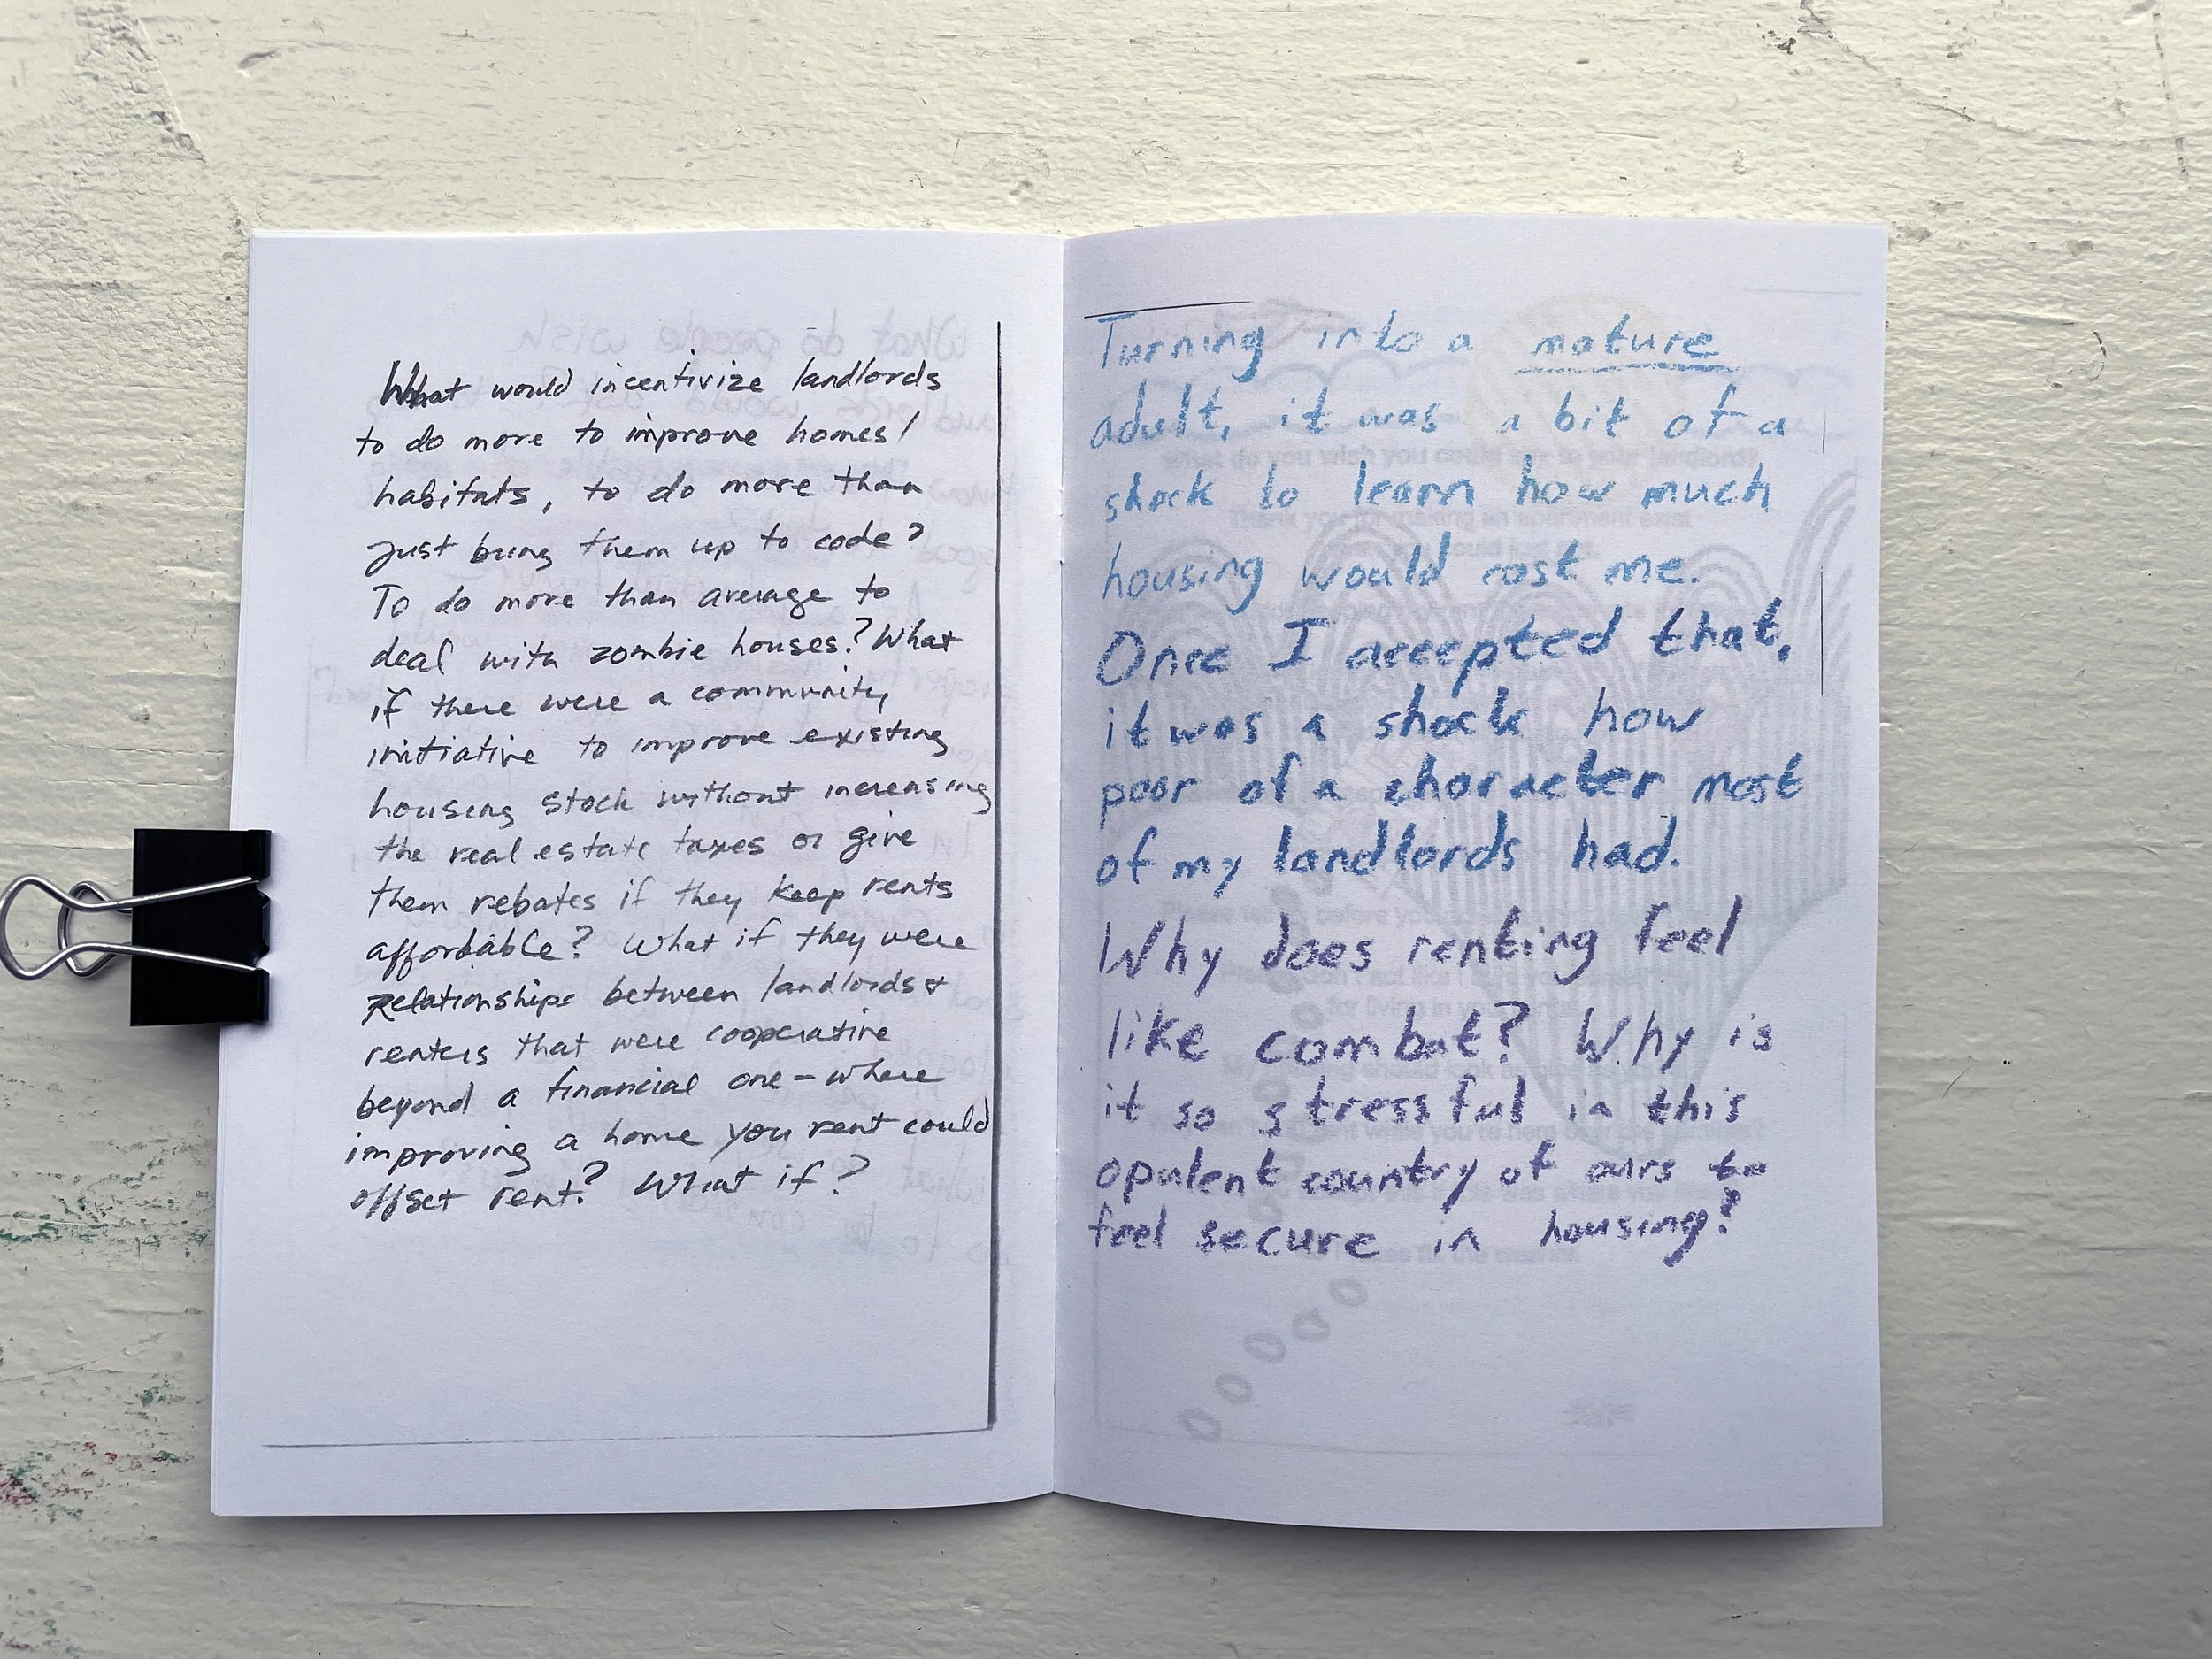 What would incentivize landlords
to do more to improve homes/
habitats, to do more than
just bring them up to code?
To do more than average to
deal with zombie houses? What
if there were a community
initiative to improve existing
housing stock without increasing
the real estate taxes or give
them rebates if they keep rents
affordable? What if they were
relationships between landlords &
renters that were cooperative
beyond a financial one - where
improving a home you rent could
offset rent? What if?
Turning into a mature
adult, it was a bit of a
shock to learn how much
housing would cost me.
Once I accepted that,
it was a shock how
poor of a character most
of my landlords had.
Why does renting feel
like combat? Why is
it so stressful in this
opulent country of ours to
feel secure in housing?